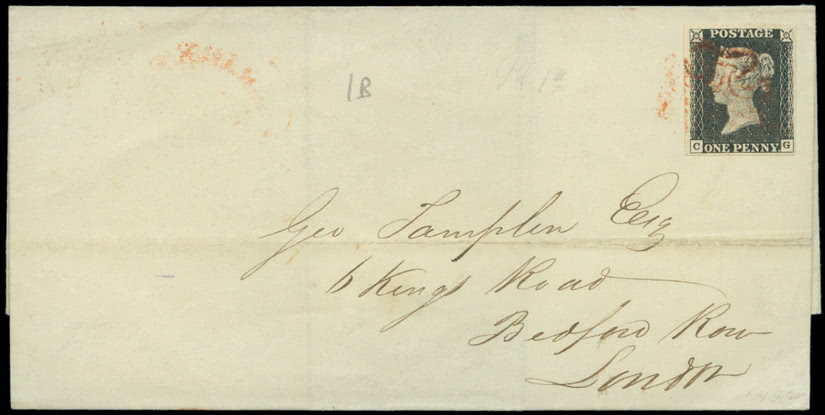 1B
POSTAGE
C ONE PENNY. G
Geo Tamplin Esq
6 Kings Road
Bedford Row
London